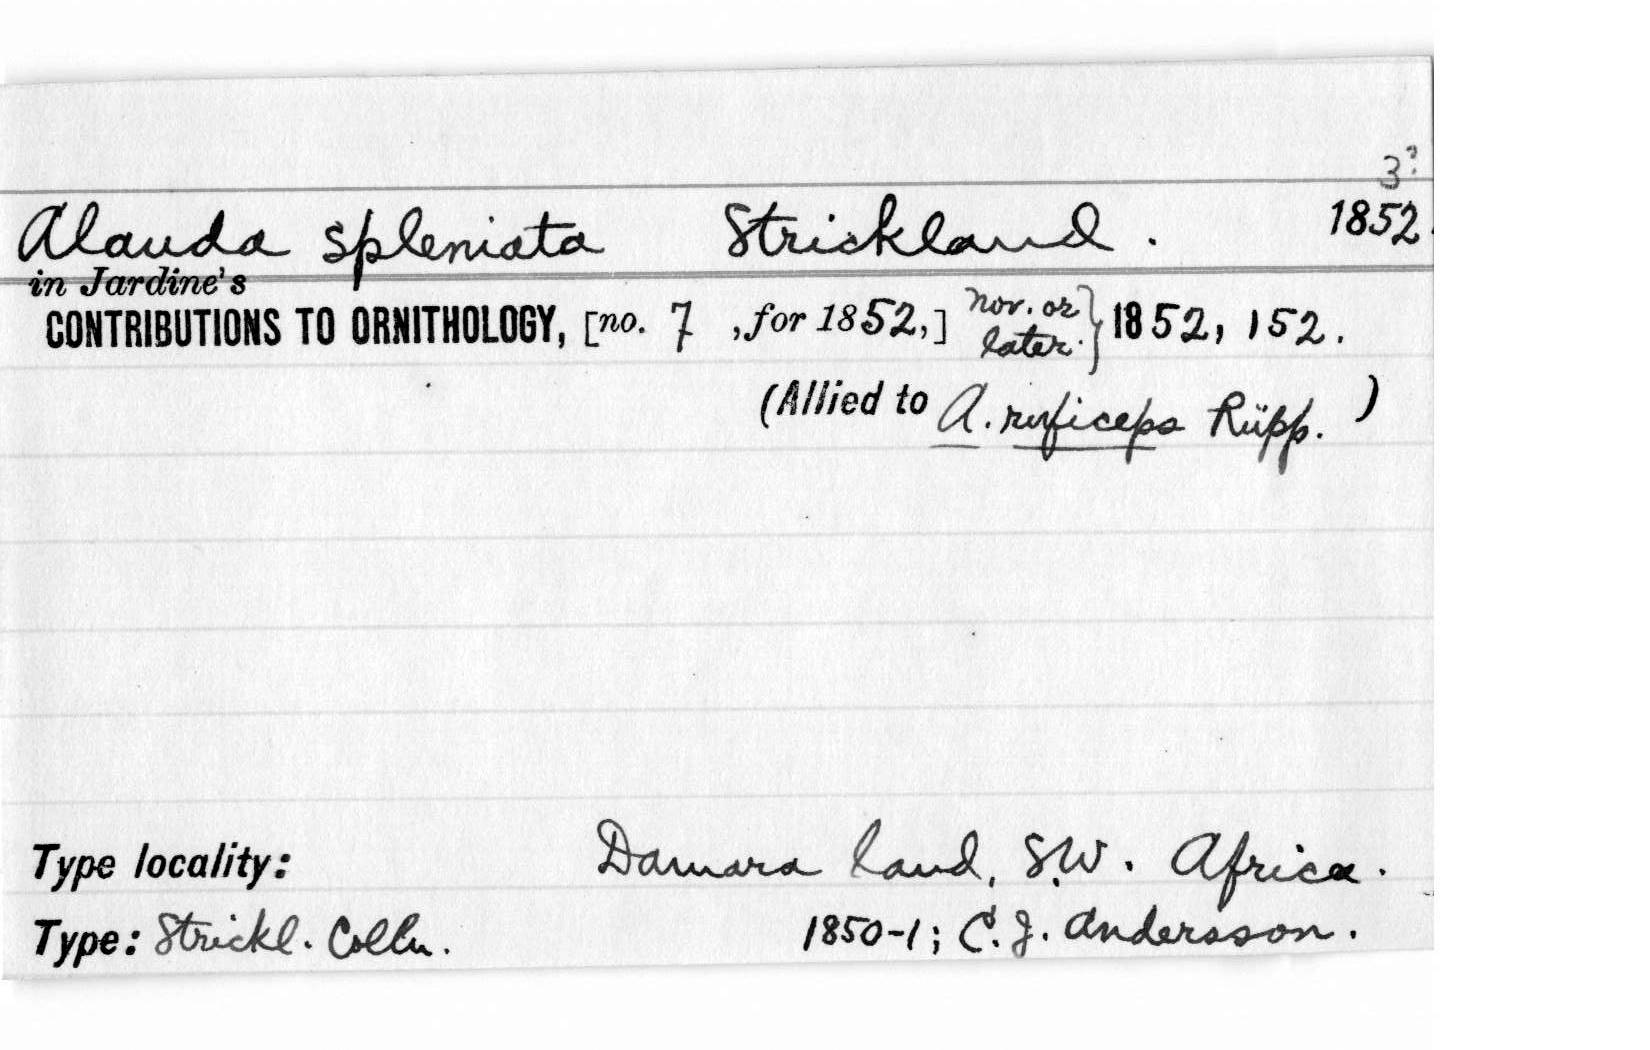 3?
Alauda spleniata Strickland. 1852.
in Jardine's
CONTRIBUTIONS TO ORNITHOLOGY, [no. 7 ,for 1852,] Nov. or later. } 1852, 152.
(Allied to A. ruficeps Rüpp. )
Type locality: Damara land, S.W. Africa.
Type: Strickl. Colln. 1850-1; C. J. Andersson.